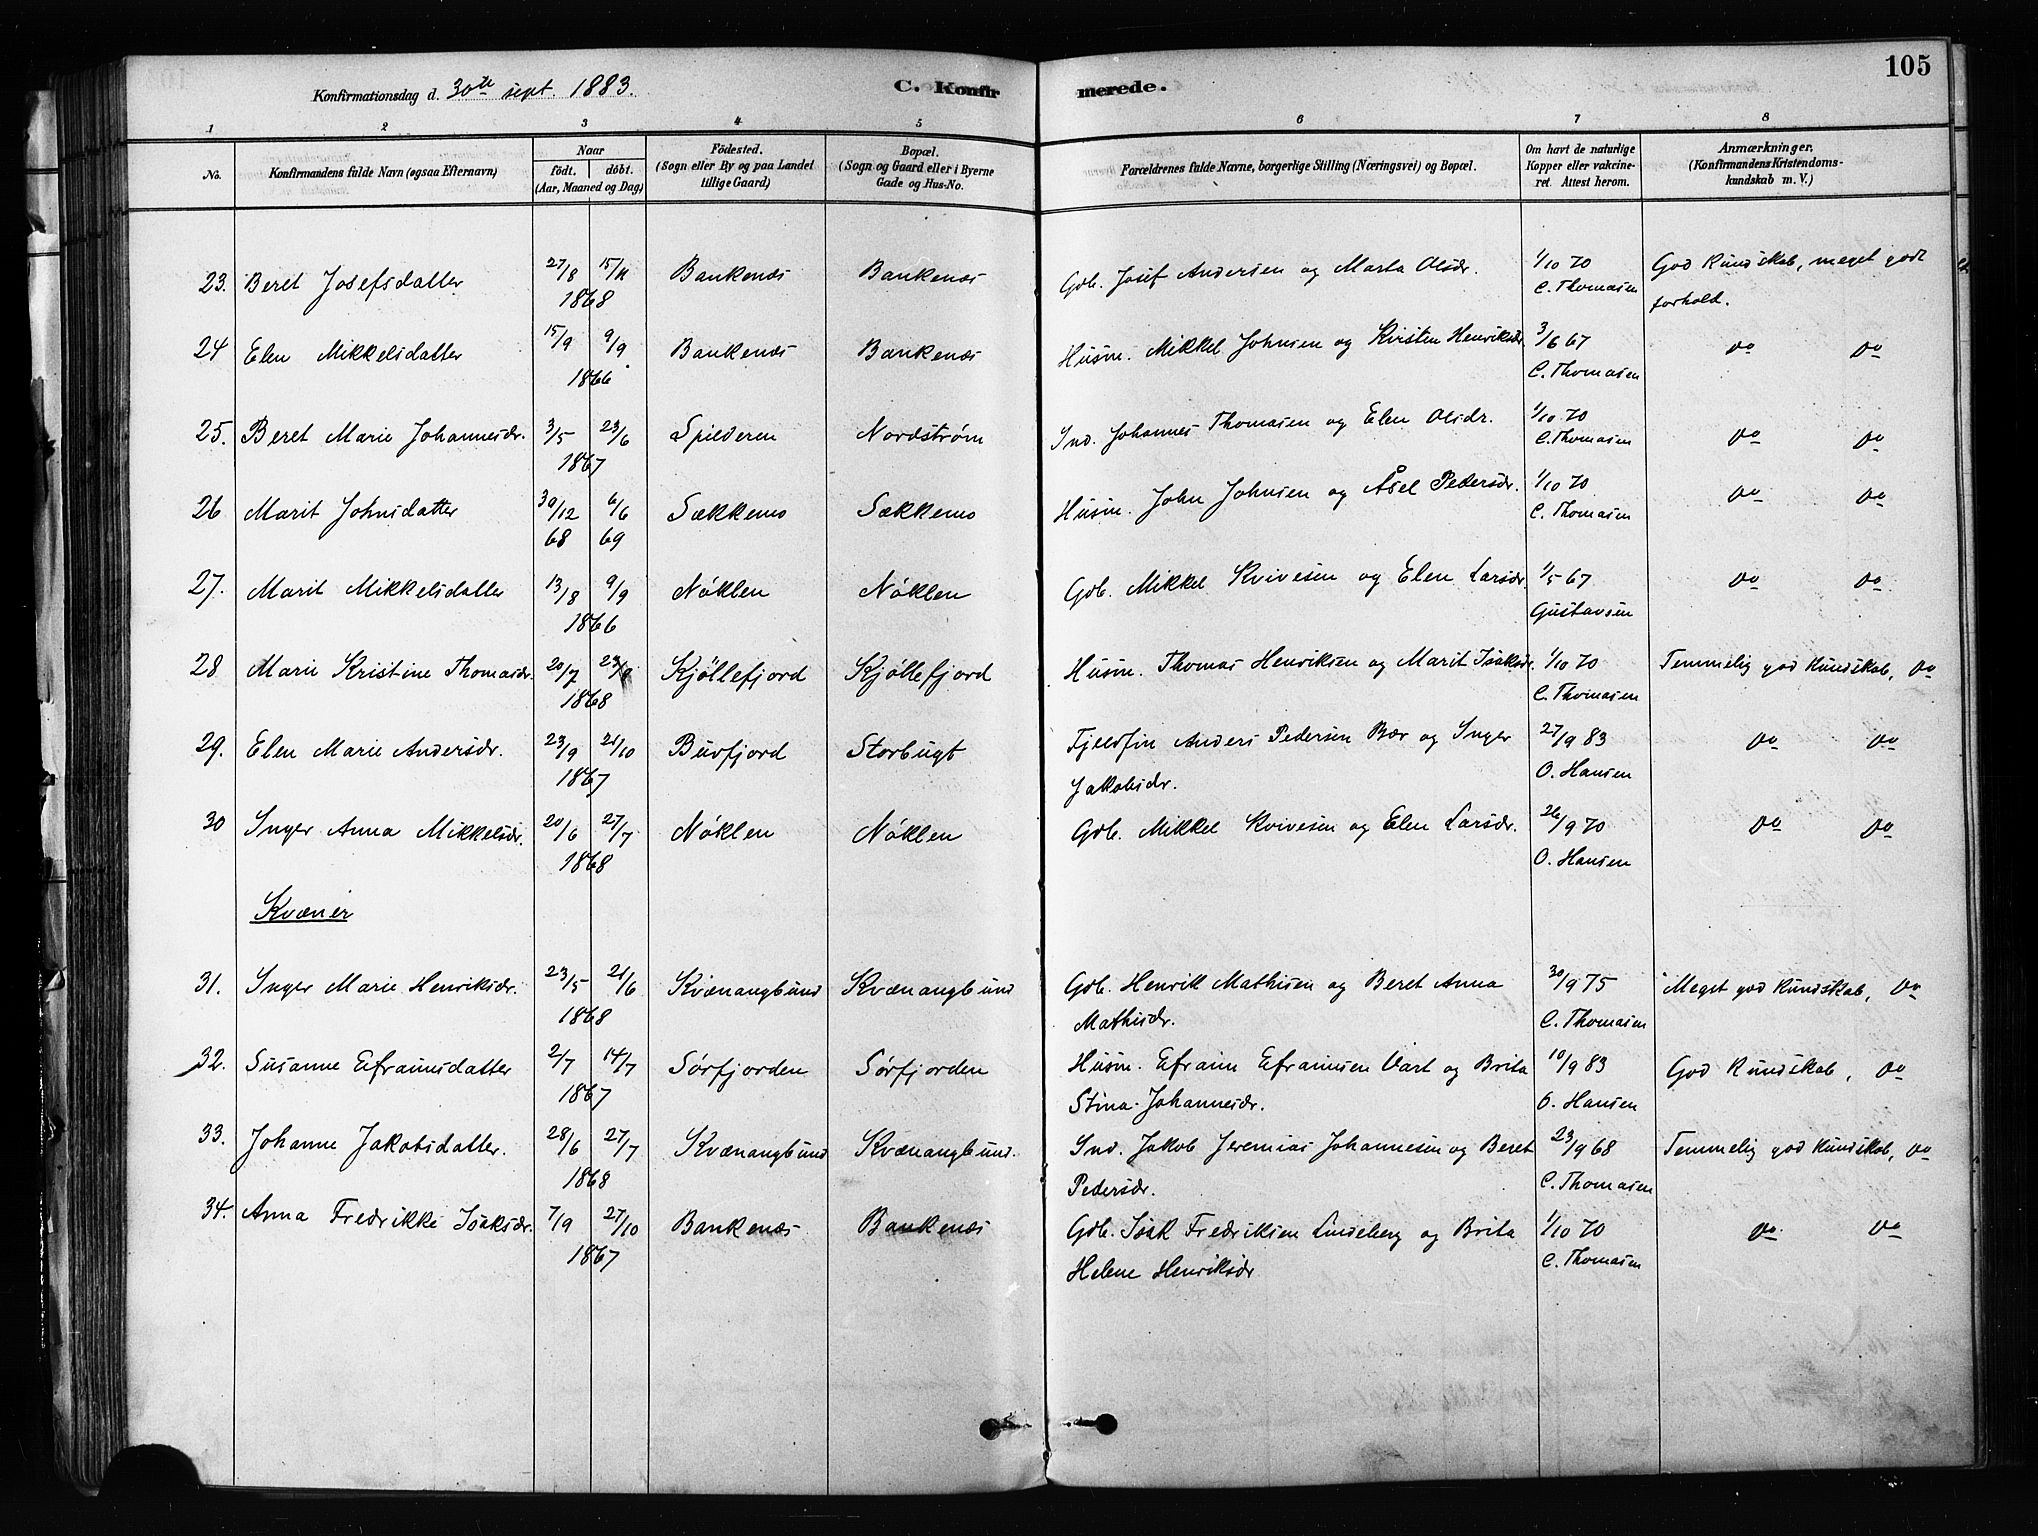 105
Konfirmationsdag d. 30te sept. 1883.
C. Konfirmerede.
1 2 3 4 5 6 7 8
No.
Konfirmandens fulde Navn (ogsaa Efternavn)
Naar
født. døbt.
(Aar, Maaned og Dag)
Fødested.
(Sogn eller By og paa Landet
tillige Gaard)
Bopæl.
(Sogn og Gaard eller i Byerne
Gade og Hus-No.
Forældrenes fulde Navne, borgerlige Stilling (Næringsvei) og Bopæl.
Om havt de naturlige
Kopper eller vakcine-
ret. Attest herom.
Anmærkninger.
(Konfirmandens Kristendoms-
kundskab m. V.)
23. Beret Josefsdatter 27/8 15/11 Bankenæs Bankenæs Gdb. Josef Andersen og Marta Olsdr. 1/10 70 God Kundskab, meget godt
1868 C. Thomasen forhold.
24 Elen Mikkelsdatter 15/9 9/9 Bankenæs Bankenæs Husm. Mikkel Johnsen og Kirsten Henriksdr. 3/6 67 do do
1866 C. Thomasen
25. Beret Marie Johannesdr. 3/5 23/6 Spilderen Nordstrøm Ind. Johannes Thomasen og Elen Olsdr. 1/10 70 do do
1867 C. Thomasen
26 Marit Johnsdatter 30/12 6/6 Sækkemo Sækkemo Husm. John Johnsen og Åsel Pedersdr. 1/10 70 do do
68 69 C. Thomasen
27. Marit Mikkelsdatter 13/8 9/9 Nøklen Nøklen Gdb. Mikkel Kvivesen og Elen Larsdr. 1/5 67 do do
1866 Gustavsen
28 Marie Kristine Thomasdr. 20/7 23/8 Kjøllefjord Kjøllefjord Husm. Thomas Henriksen og Marit Isaksdr. 1/10 70 Temmelig god Kundskab, do
1868 C. Thomasen
29. Elen Marie Andersdr. 23/9 21/10 Burfjord Storbugt Fjeldfin Anders Pedersen Bær og Inger 27/9 83 do do
1867 Jakobsdr. O. Hansen
30 Inger Anna Mikkelsdr. 20/6 27/7 Nøklen Nøklen Gdb. Mikkel Kvivesen og Elen Larsdr. 26/9 70 do do
1868 O. Hansen
Kvæner
31. Inger Marie Henriksdr. 23/5 21/6 Kvænangbund Kvænangbund Gdb. Henrik Mathisen og Beret Anna 30/9 75 Meget god Kundskab, do
1868 Mathisdr. C. Thomasen
32. Susanne Efraimsdatter 2/7 14/7 Sørfjorden Sørfjorden Husm. Efraim Efraimsen Vart og Brita 10/9 83 God Kundskab, do
1867 Stina Johannesdr. O. Hansen
33. Johanne Jakobsdatter. 28/6 27/7 Kvænangbund Kvænangbund. Ind. Jakob Jeremias Johannesen og Beret 23/9 68 Temmelig god Kundskab, do
1868 Pedersdr. C. Thomasen
34. Anna Fredrikke Isaksdr. 7/9 27/10 Bankenæs Bankenæs Gdb. Isak Fredriksen Lindeberg og Brita 1/10 70 do do
1867 Helene Henriksdr C. Thomasen